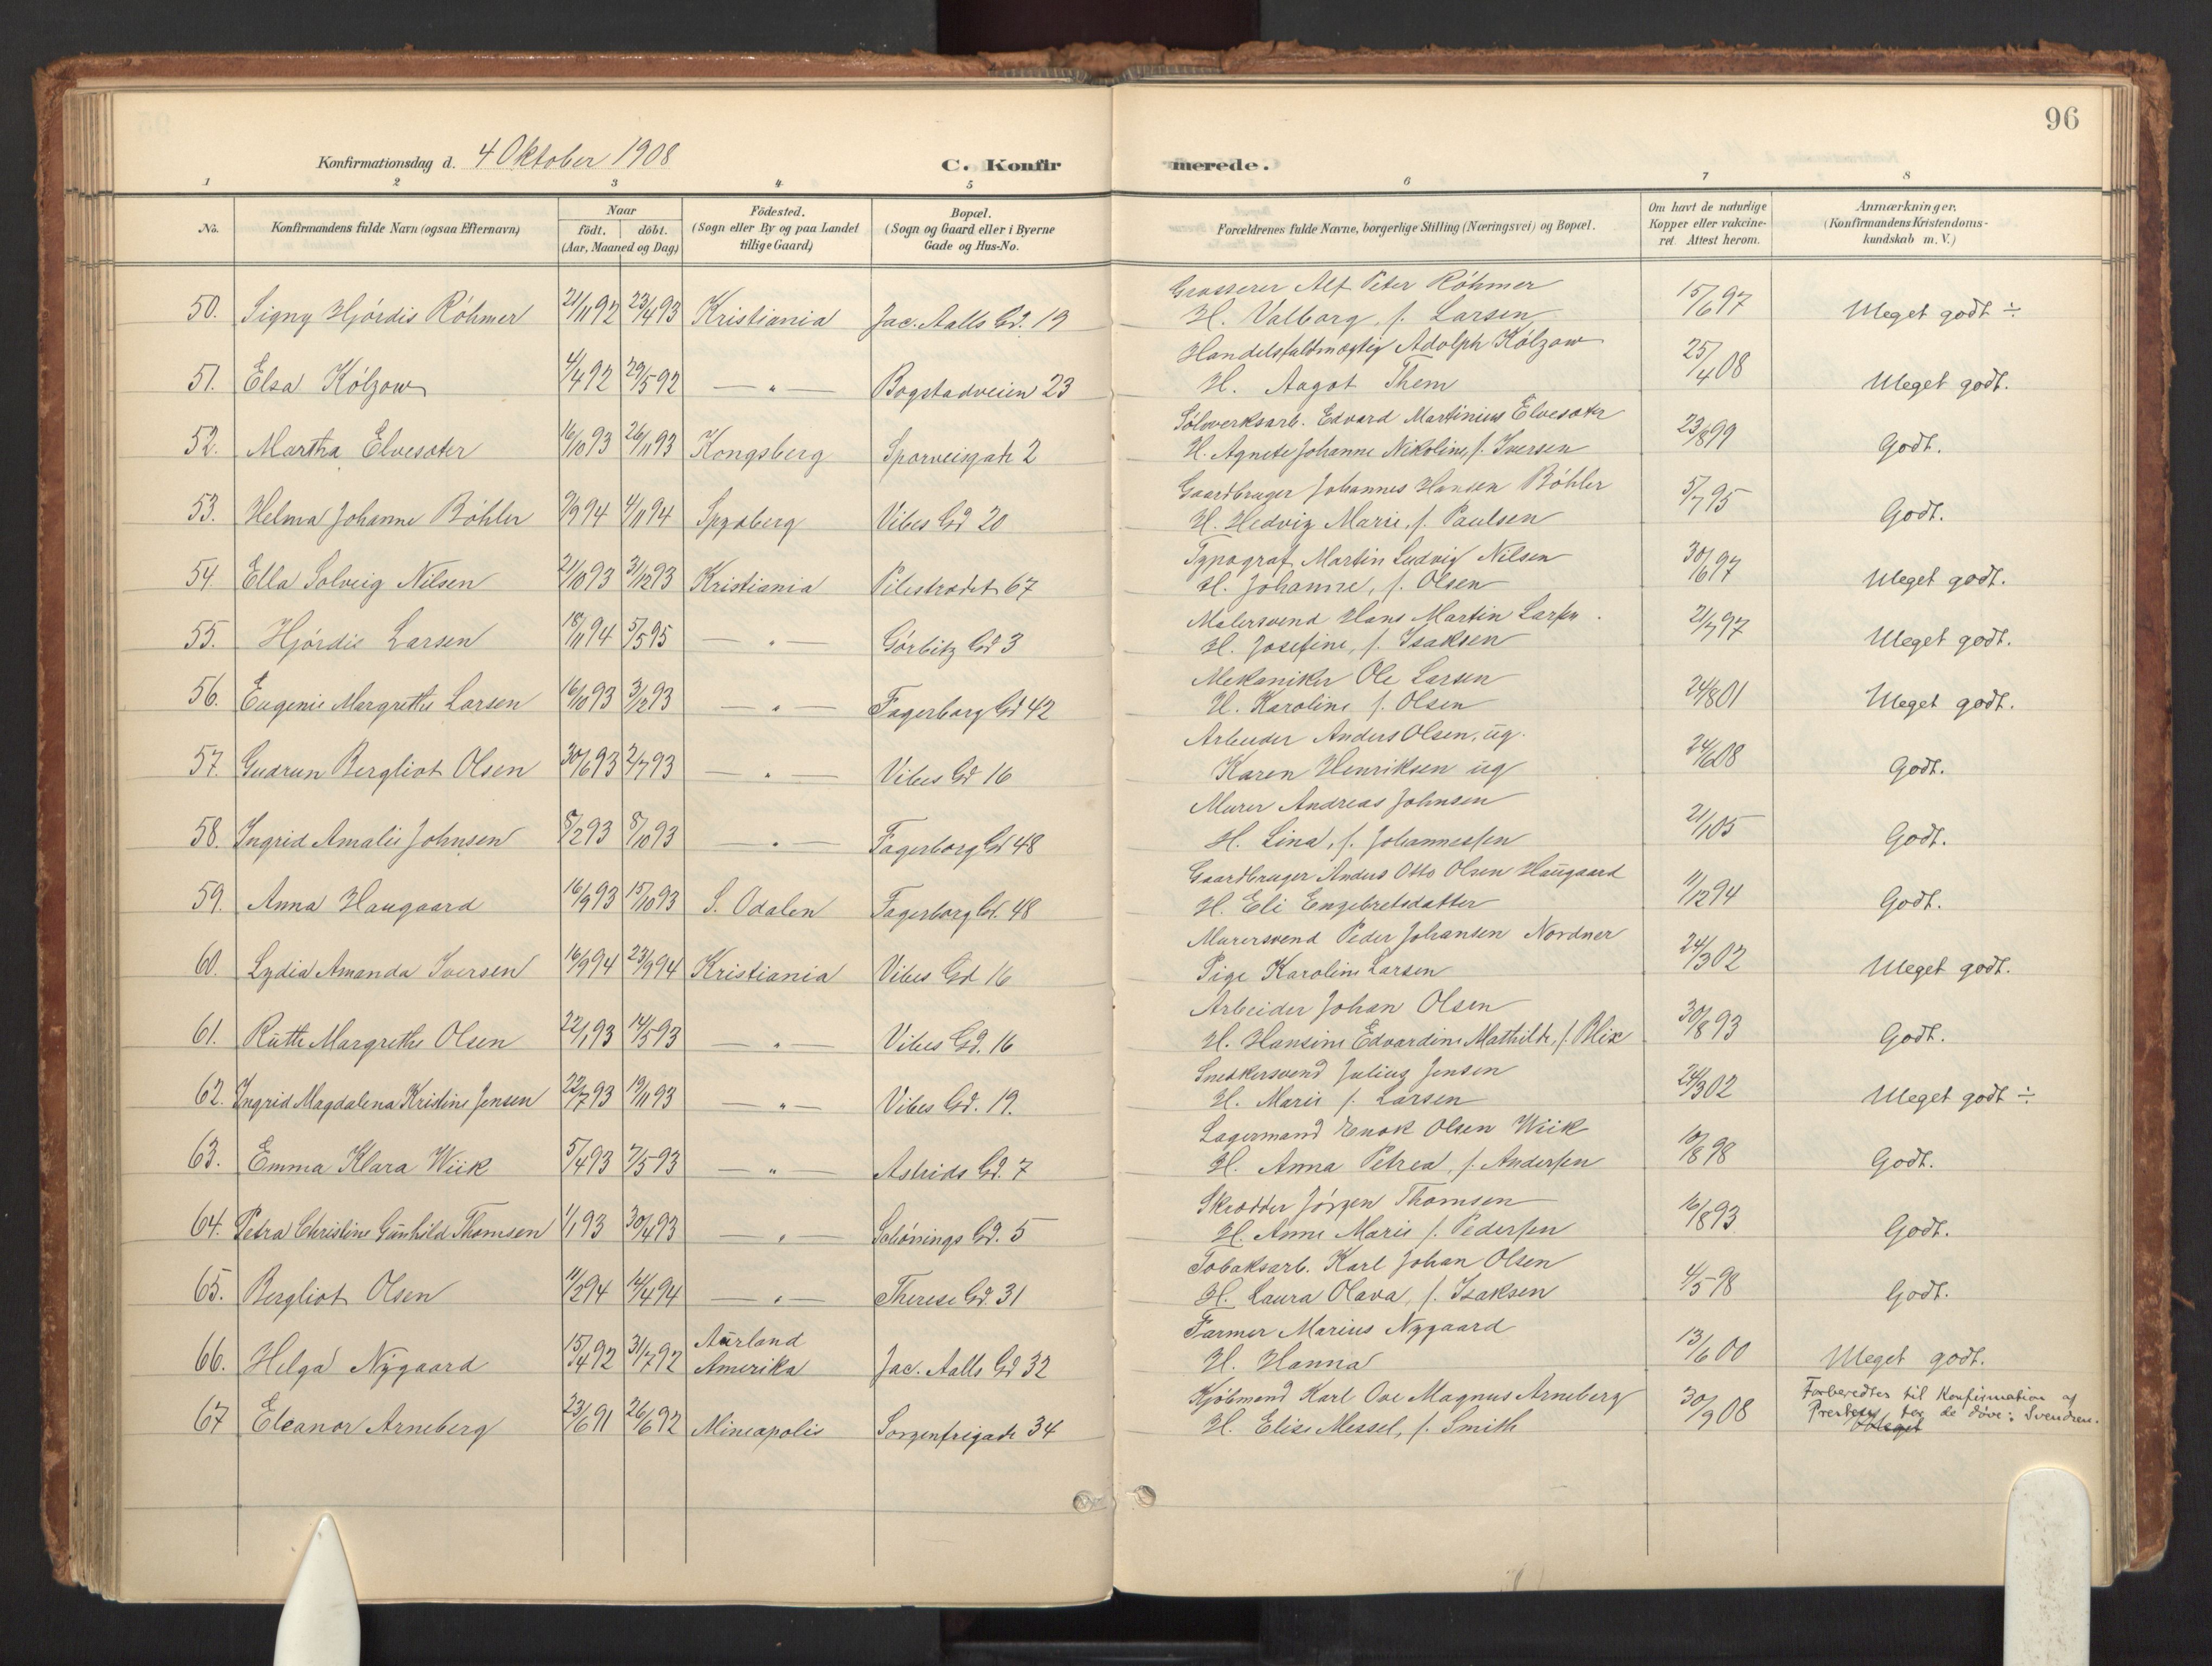 96
Konfirmationsdag d. 4 Oktober 1908
C. Konfirmerede.
1 2 3 4 5 6 7 8
No. | Konfirmandens fulde Navn (ogsaa Efternavn) | Naar födt. döbt. (Aar, Maaned og Dag) | Födested. (Sogn eller By og paa Landet tillige Gaard) | Bopæl. (Sogn og Gaard eller i Byerne Gade og Hus-No. | Forældrenes fulde Navne, borgerlige Stilling (Næringsvei) og Bopæl. | Om havt de naturlige Kopper eller vakcineret. Attest herom. | Anmærkninger. (Konfirmandens Kristendomskundskab m. V.)
Grosserer Alf Peter Röhmer
50. Signy Hjördis Röhmer 21/11 92 23/4 93 Kristiania Jac. Aalls Gd. 19 H. Valborg, f. Larsen 15/6 97 Meget godt ÷
Handelsfuldmægtig Adolph Kölzow
51. Elsa Kölzow 4/4 92 29/5 92 — " — Bogstadveien 23 H. Aagot Them 25/4 08 Meget godt.
Sölvverksarb. Edvard Martinius Elvesæter
52. Martha Elvesæter 16/10 93 26/11 93 Kongsberg Sporveisgade 2 H. Agnete Johanne Nikoline, f. Iversen 23/8 99 Godt.
Gaardbruger Johannes Hansen Böhler
53. Helma Johanne Böhler 9/9 94 4/11 94 Spydberg Vibes Gd 20 H. Hedvig Marie, f. Paulsen 5/7 95 Godt.
Typograf Martin Ludvig Nilsen
54. Ella Solveig Nilsen 21/10 93 31/12 93 Kristiania Pilestrædet 67 H. Johanne, f. Olsen 30/6 97 Meget godt.
Malersvend Hans Martin Larsen.
55. Hjördis Larsen 18/11 94 5/5 95 — " — Görbitz Gd 3 H. Josefine, f. Isaksen 21/7 97 Meget godt.
Mekaniker Ole Larsen
56. Eugenie Margrethe Larsen 16/10 93 3/12 93 — " — Fagerborg Gd 42 H. Karoline f. Olsen 24/8 01 Meget godt.
Arbeider Anders Olsen, ug.
57. Gudrun Bergliot Olsen 30/6 93 2/7 93 — " — Vibes Gd 16 Karen Henriksen ug 24/6 08 Godt.
Murer Andreas Johnsen
58. Ingrid Amalie Johnsen 8/2 93 8/10 93 — " — Fagerborg Gd 48 H. Lina, f. Johannessen 21/1 05 Godt.
Gaardbruger Anders Otto Olsen Haugaard
59. Anna Haugaard 16/9 93 15/10 93 S. Odalen Fagerborg Gd. 48 H. Eli Engebretsdatter 11/12 94 Godt.
Murersvend Peder Johansen Nordner
60. Lydia Amanda Iversen 16/9 94 23/9 94 Kristiania Vibes Gd 16 Pige Karoline Larsen 24/3 02 Meget godt.
Arbeider Johan Olsen
61. Ruth Margrethe Olsen 22/1 93 14/5 93 — " — Vibes Gd. 16 H. Hansine Edvardine Mathilde, f. Blix 30/8 93 Godt.
Snedkersvend Julius Jensen
62. Ingrid Magdalena Kristine Jensen 22/7 93 19/11 93 — " — Vibes Gd. 19. H. Marie f. Larsen 24/3 02 Meget godt ÷
Lagermand Enok Olsen Wiik
63. Emma Klara Wiik 5/4 93 7/5 93 — " — Astrids Gd. 7 H. Anna Petrea, f. Andersen 10/8 98 Godt.
Skrædder Jörgen Thomsen
64. Petra Christine Gunhild Thomsen 1/1 93 30/4 93 — " — Schönings Gd. 5 H. Anne Marie f. Pedersen 16/8 93 Godt.
Tobaksarb. Karl Johan Olsen
65. Bergliot Olsen 11/2 94 14/4 94 — " — Therese Gd. 31 H. Laura Olava, f. Isaksen 4/5 98 Godt.
Aurland Farmer Marius Nygaard
66. Helga Nygaard 15/4 92 31/7 92 Amerika Jac. Aalls Gd 32 H. Hanna 13/6 00 Meget godt.
Kjöbmand Karl Ove Magnus Arneberg Forberedtes til Konfirmation af
67 Eleanor Arneberg 23/6 91 26/6 92 Mineapolis Sorgenfrigade 34 H. Elise Messel, f. Smith 30/9 08 Presten for de döve: Svendsen.
Meget